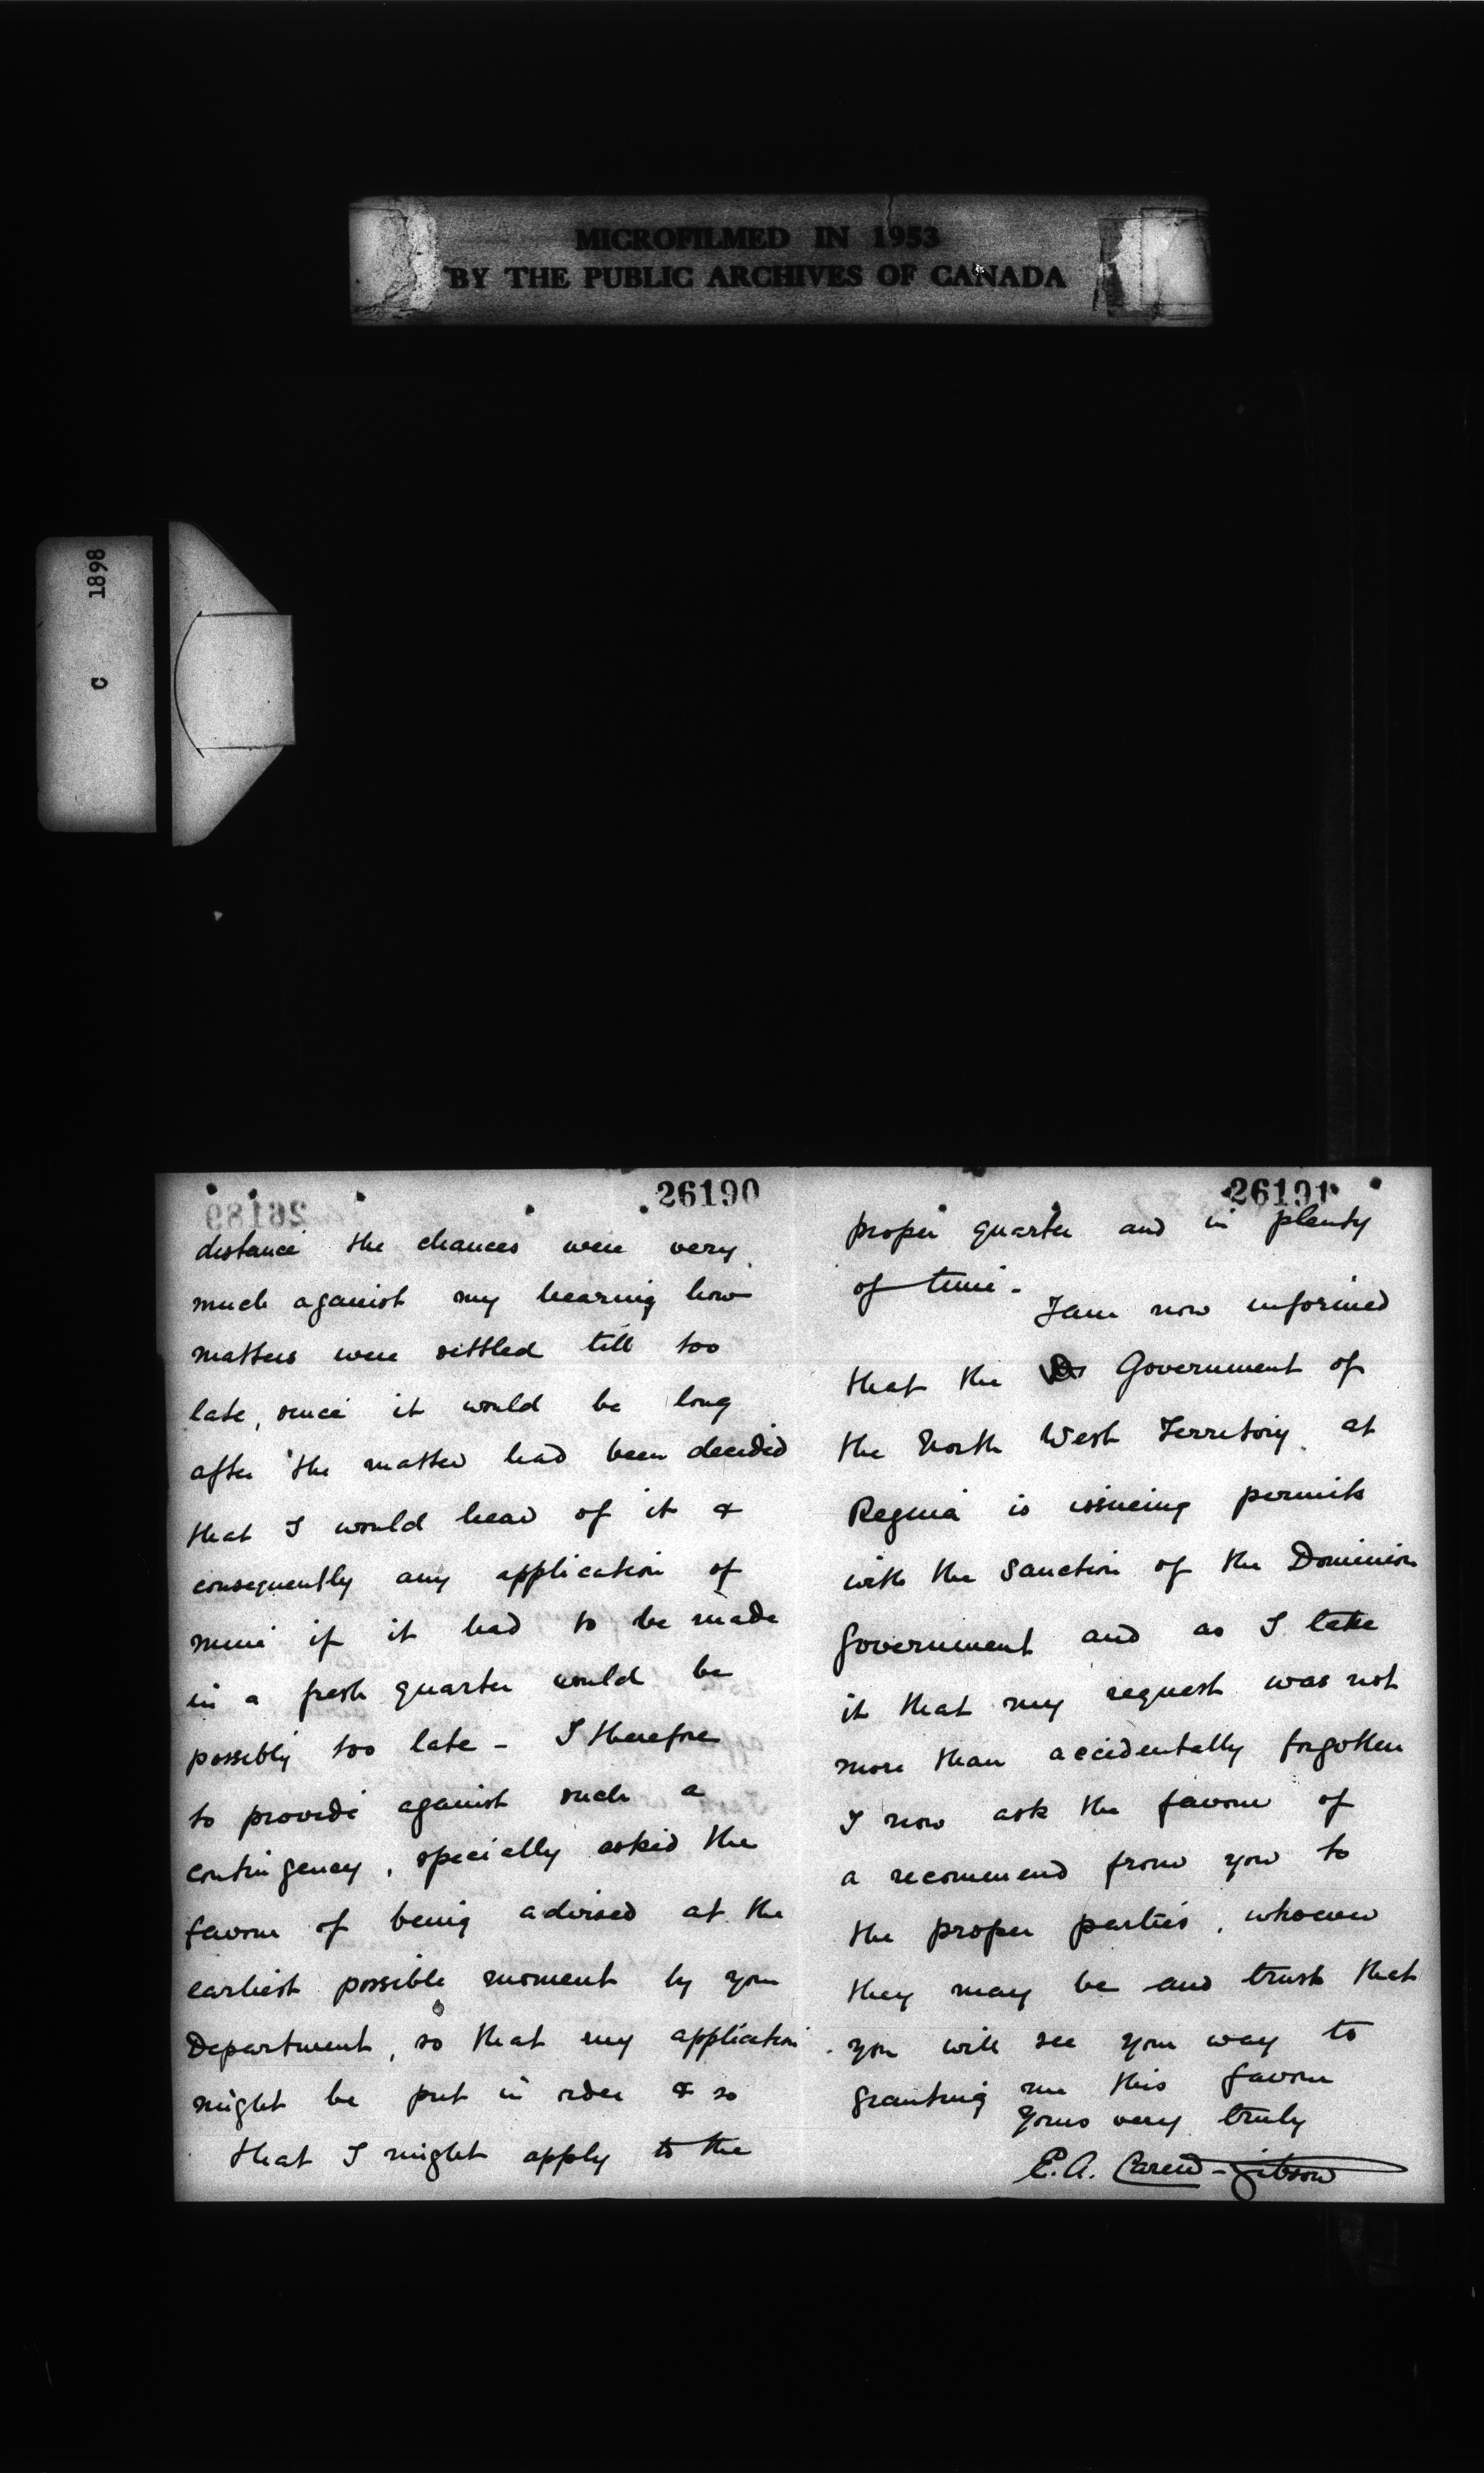 MICROFILMED IN 1953
BY THE PUBLIC ARCHIVES OF CANADA
C 1898
26190
26189
distance the chances were very
much against my hearing how
matters were settled till too
late, since it would be long
after the matter had been decided
that I would hear of it &
consequently any application of
mine if it had to be made
in a fresh quarter would be
possibly too late - I therefore
to provide against such a
contingency, specially asked the
favour of being advised at the
earliest possible moment by your
Department, so that my application
might be put in order & so
that I might apply to the
26191
proper quarter and in plenty
of time.
I am now informed
that the Government of
the North West Territory at
Regina is issueing permits
with the Sanction of the Dominion
Government and as I take
it that my request was not
more than accidentally forgotten
I now ask the favour of
a recommend from you to
the proper parties, whoever
they may be and trust that
you will see your way to
granting me this favour
Yours very truly
E. A. Carew-Gibson